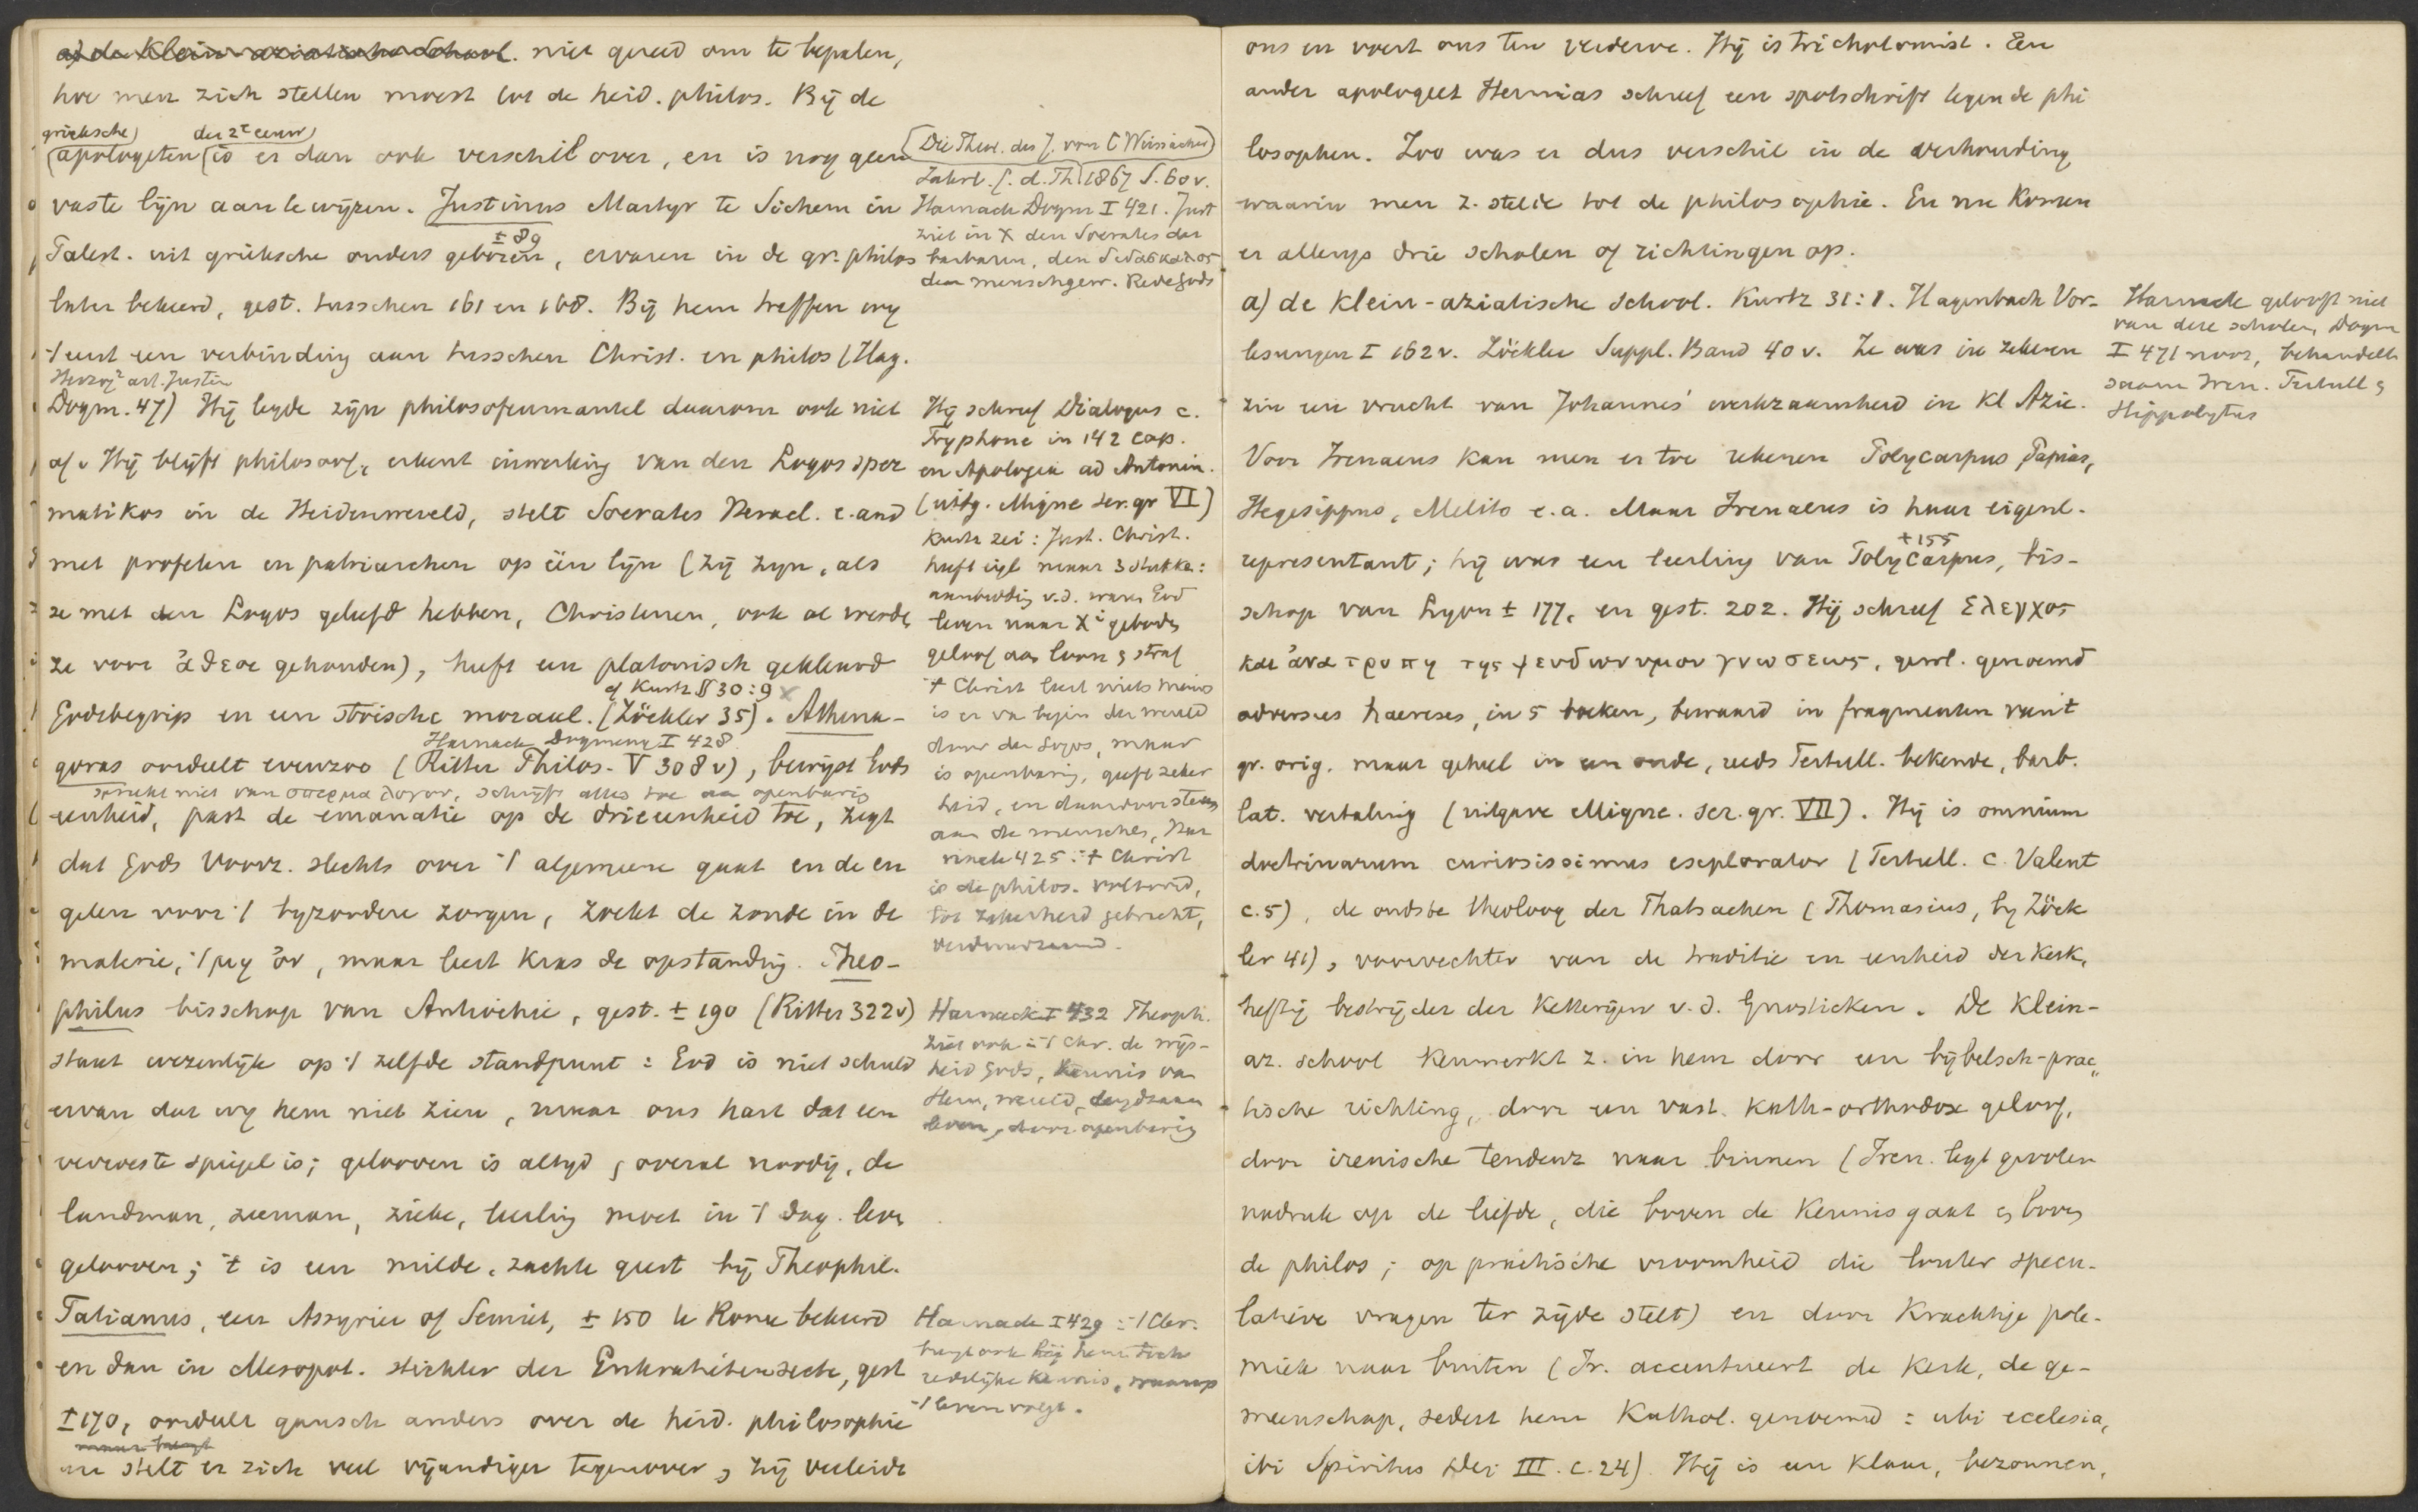 a) de Klein-aziatische School. niet gereed om te bepalen,
hoe men zich stellen moest tot de heid. philos. Bij de
grieksche) der 2e eeuw)
(apologeten (is er dan ook verschil over, en is nog geen
vaste lijn aan te wijzen. Justinus Martyr te Sichem in
± 89
Palest. uit grieksche ouders geboren, ervaren in de gr. philos
later bekeerd, gest. tusschen 161 en 168. Bij hem treffen wij
't eerst een verbinding aan tusschen Christ. en philos (Hag.
Herzog2 art. Justin
Dogm. 47) Hij legde zijn philosofenmantel daarom ook niet
af. Hij blijft philosoof, erkent inwerking van den Logos sper
matikos in de Heidenwereld, stelt Socrates Heracl. e. and
met profeten en patriarchen op één lijn (zij zijn, als
ze met den Logos geleefd hebben, Christenen, ook al werden
ze voor ἄθεοι gehouden), heeft een platonisch gekleurd
cf Kurtz § 30:9
Godsbegrip en een stoische moraal. (Zöckler 35). Athena-
Harnack Dogmeng I 428
goras oordeelt evenzoo (Ritter Philos. V 308 v), bewijst Gods
spreekt niet van σπερμα λογου, schrijft alles toe aan openbaring
eenheid, past de emanatie op de drieeenheid toe, zegt
dat Gods Voorz. slechts over 't algemeene gaat en de en
gelen voor 't byzondere zorgen, zoekt de zonde in de
materie, 't μη ὀν, maar leert kras de opstanding. Theo-
philus bisschop van Antiochie, gest. ± 190 (Ritter 322v)
staat wezenlijk op 't zelfde standpunt: God is niet schuld
ervan dat wij hem niet zien, maar ons hart dat een
verweerste spiegel is; gelooven is altijd & overal noodig, de
landman, zeeman, zieke, leerling moet in 't dag. leven
gelooven; 't is een milde, zachte geest bij Theophil.
Tatianus, een Assyrier of Semiet, ± 150 te Rome bekeerd
en dan in Mesopot. stichter der Enkratitensecte, gest
± 170, oordeelt gansch anders over de heid. philosophie
maar
en stelt er zich veel vijandiger tegenover, zij verleidt
(Die Theol. des J. von C Weissäcker)
Jahrb. f. d. Th. 1867 S. 60 v.
Harnack Dogm I 421. Just
ziet in X den Socrates der
barbaren, den διδασκαλος
den menschgew. Rede Gods
Hij schreef Dialogus c.
Tryphone in 142 cap.
en Apologia ad Antonin.
(uitg. Migne ser. gr VI)
Kurtz zei: Just. Christ.
heeft eigl maar 3 stukken:
aanbidding v.d. waren God
leven naar Xi geboden
geloof aan loon & straf
't Christ leert niets nieuws
is er va begin der wereld
door den Logos, maar
is openbaring, geeft zeker
heid, en daardoor steun
aan de menschen, Har
nack 425: 't Christ
is de philos. voltooid,
tot zekerheid gebracht,
Harnack I 432 Theoph.
ziet ook in 't Chr. de wijs-
heid Gods, kennis van
Hem, wereld, deugdzaam
leven, door openbaring
Harnack I 429: 't Chr.
brengt ook bij hem toch
redelijke kennis, waarop
't leven volgt.
ons en voert ons ten verderve. Hij is trichotomist. Een
ander apologeet Hermias schreef een spotschrift tegen de phi
losophen. Zoo was er dus verschil in de verhouding
waarin men z. stelde tot de philosophie. En nu komen
er allengs drie scholen of richtingen op.
a) de klein-aziatische School. Kurtz 31:1. Hagenbach Vor-
lesungen I 162 v. Zöckler Suppl. Band 40 v. Ze was in zekeren
zin een vrucht van Johannes' werkzaamheid in Kl Azie.
Voor Irenaeus kan men er toe rekenen Polycarpus, Papias,
Hegesippus, Melito e.a. Maar Irenaeus is haar eigenl.
+155
representant; hij was een leerling van Polycarpus, bis-
schop van Lyon ± 177, en gest. 202. Hij schreef Ελεγχος
και ἀνατροπη της ψευδωνυμου γνωσεως, gewl. genoemd
adversus haereses, in 5 boeken, bewaard in fragmenten van 't
gr. orig. maar geheel in een oude, reeds Tertull. bekende, barb.
lat. vertaling (uitgave Migne. ser. gr. VII). Hij is omnium
doctrinarum curiosissimus explorator (Tertull. c. Valent
c. 5), de oudste theoloog der Thatsachen (Thomasius, by Zöck
ler 41), voorvechter van de traditie en eenheid der kerk,
heftig bestrijder der ketterijen v. d. Gnostieken. De Klein-
az. school kenmerkt z. in hem door een bijbelsch-prac„
tische richting, door een vast. kath-orthodox geloof,
door irenische tendenz naar binnen (Iren. legt grooten
nadruk op de liefde, die boven de kennis gaat & boven
de philos; op practische vroomheid die louter specu-
latieve vragen ter zijde stelt) en door krachtige pole-
miek naar buiten (Ir. accentueert de kerk, de ge-
meenschap, sedert hem Kathol. genoemd: ubi ecclesia,
ibi Spiritus Dei III. c. 24). Hij is een klaar, bezonnen,
Harnack gelooft niet
van deze scholen, Dogm
I 471 noot, behandelt
saam Iren. Tertull &
Hippolytus